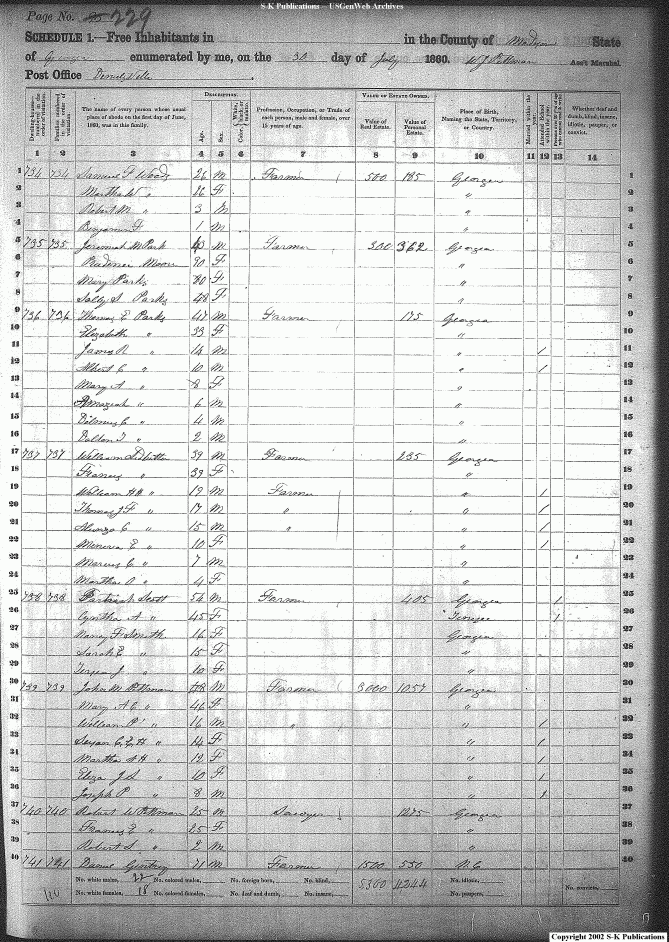 S-K Publications — USGenWeb Archives
Page No. 229
SCHEDULE 1.—Free Inhabitants in in the County of Madison State
of Georgia enumerated by me, on the 30 day of July 1860. W J Pittman Ass't Marshal.
Post Office Danielsville
DESCRIPTION. VALUE OF ESTATE OWNED.
Dwelling-houses—numbered in the order of visitation. Families numbered in the order of visitation. The name of every person whose usual place of abode on the first day of June, 1860, was in this family. Age. Sex. Color, White, black, or mulatto. Profession, Occupation, or Trade of each person, male and female, over 15 years of age. Value of Real Estate. Value of Personal Estate. Place of Birth, Naming the State, Territory, or Country. Married within the year. Attended School within the year. Whether deaf and dumb, blind, insane, idiotic, pauper, or convict.
1 2 3 4 5 6 7 8 9 10 11 12 13 14
1 734 734 Samuel F Woods 26 M Farmer 500 185 Georgia 1
2 Martha " 26 F " 2
3 Robert M " 3 M " 3
4 Benjamin F 1 M " 4
5 735 735 Jeremiah M Park M Farmer 300 362 Georgia 5
6 Prudence Moore F " 6
7 Mary Parks 80 F " 7
8 Sally S Parks 48 F " 8
9 736 736 Thomas E Parks 47 M Farmer 175 Georgia 9
10 Elizabeth " 33 F " 10
11 James R " 14 M " / 11
12 Albert C " 10 M " / 12
13 Mary A " 8 F " 13
14 Amaziah " 6 M " 14
15 " 4 M " 15
16 " 2 M " 16
17 737 737 William 39 M Farmer 235 Georgia 17
18 Frances " 39 F " 18
19 William H H " 19 M Farmer " / 19
20 Thomas J F " 17 M " " / 20
21 Alonzo C " 15 M " " / 21
22 Minerva E " 10 F " / 22
23 Marcus C " 7 M " 23
24 Martha A " 4 F " 24
25 738 738 Scott 54 M Farmer 405 Georgia / 25
26 Cyntha A " 45 F / 26
27 Nancy F Smith 16 F Georgia 27
28 Sarah E " 15 F " 28
29 J " 10 F " 29
30 739 739 John M Pittman 48 M Farmer 3000 1057 Georgia 30
31 Mary A E " 46 F " 31
32 William P " 16 M " " / 32
33 " 14 F " / 33
34 Martha A H " 12 F " / 34
35 Eliza J S " 10 F " / 35
36 Joseph P " 8 M " 1 36
37 740 740 Robert W Pittman 25 M Sawyer 1275 Georgia 37
38 Frances E " 25 F " 38
39 Robert S " 2 M " 39
40 741 741 Daniel 71 M Farmer 1500 550 N.C. 40
No. white males, 22 No. colored males, No. foreign born, No. blind, 5300 4244 No. idiotic, No. convicts,
No. white females, 18 No. colored females, No. deaf and dumb, No. insane, No. paupers,
Copyright 2002 S-K Publications